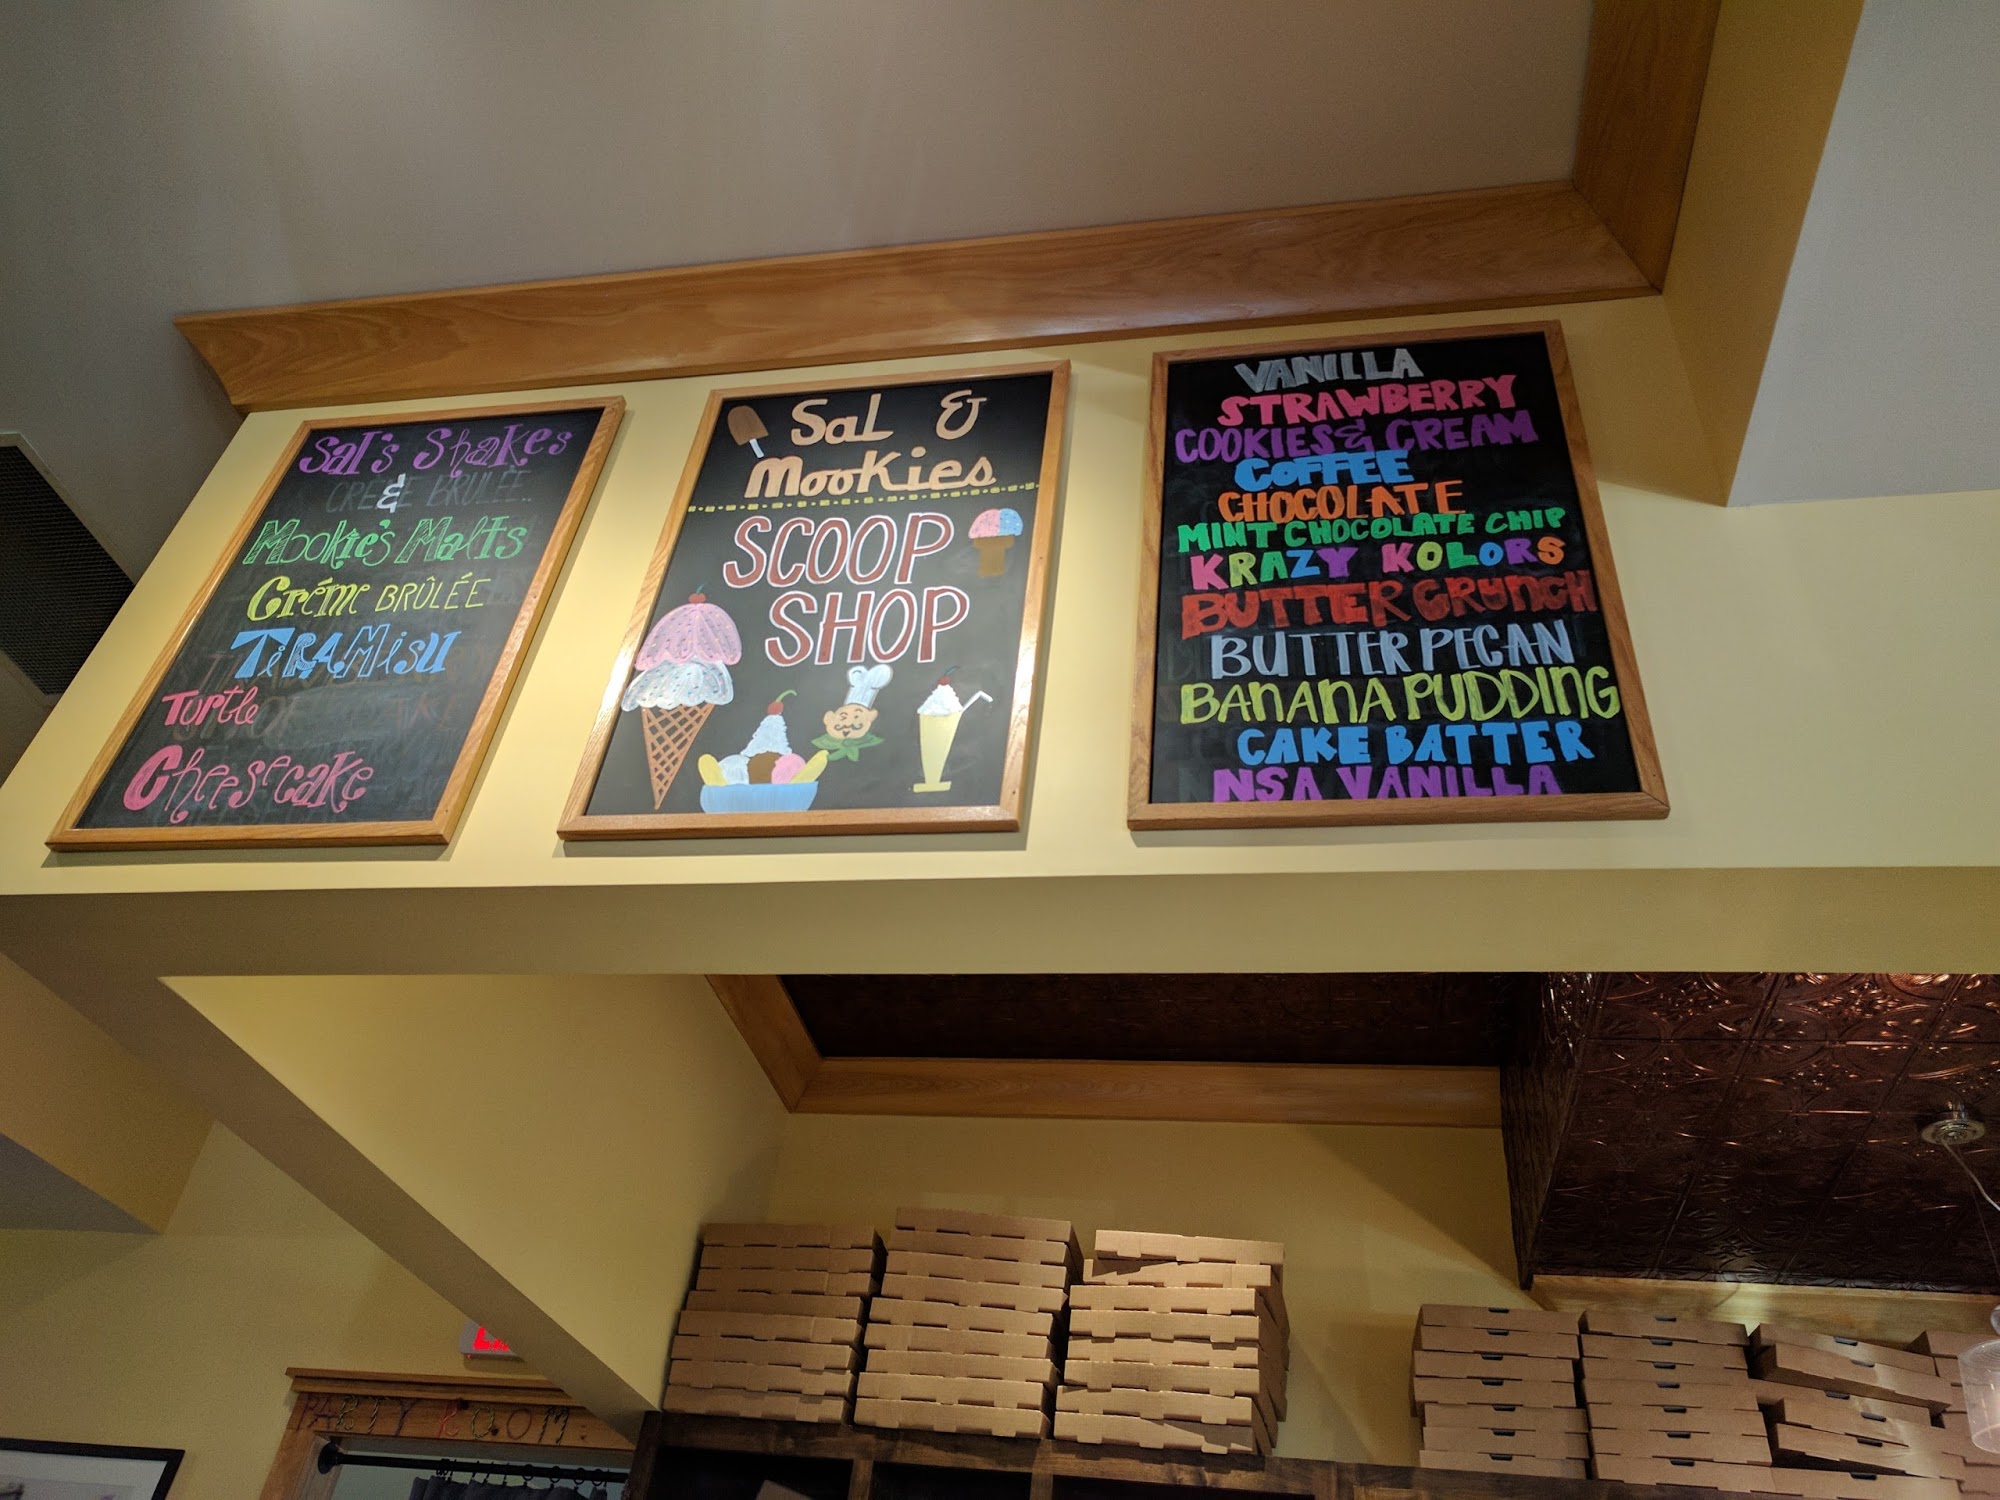 Sal's Shakes
CRÈME BRULÉE..
&
Mookie's Malts
Créme BRÛLÉE
TiRAMisU
Turtle
Cheesecake
Sal &
Mookies
SCOOP
SHOP
VANILLA
STRAWBERRY
COOKIES & CREAM
COFFEE
CHOCOLATE
MINT CHOCOLATE CHIP
KRAZY KOLORS
BUTTER CRUNCH
BUTTER PECAN
BANANA PUDDING
CAKE BATTER
NSA VANILLA
PARTY ROOM